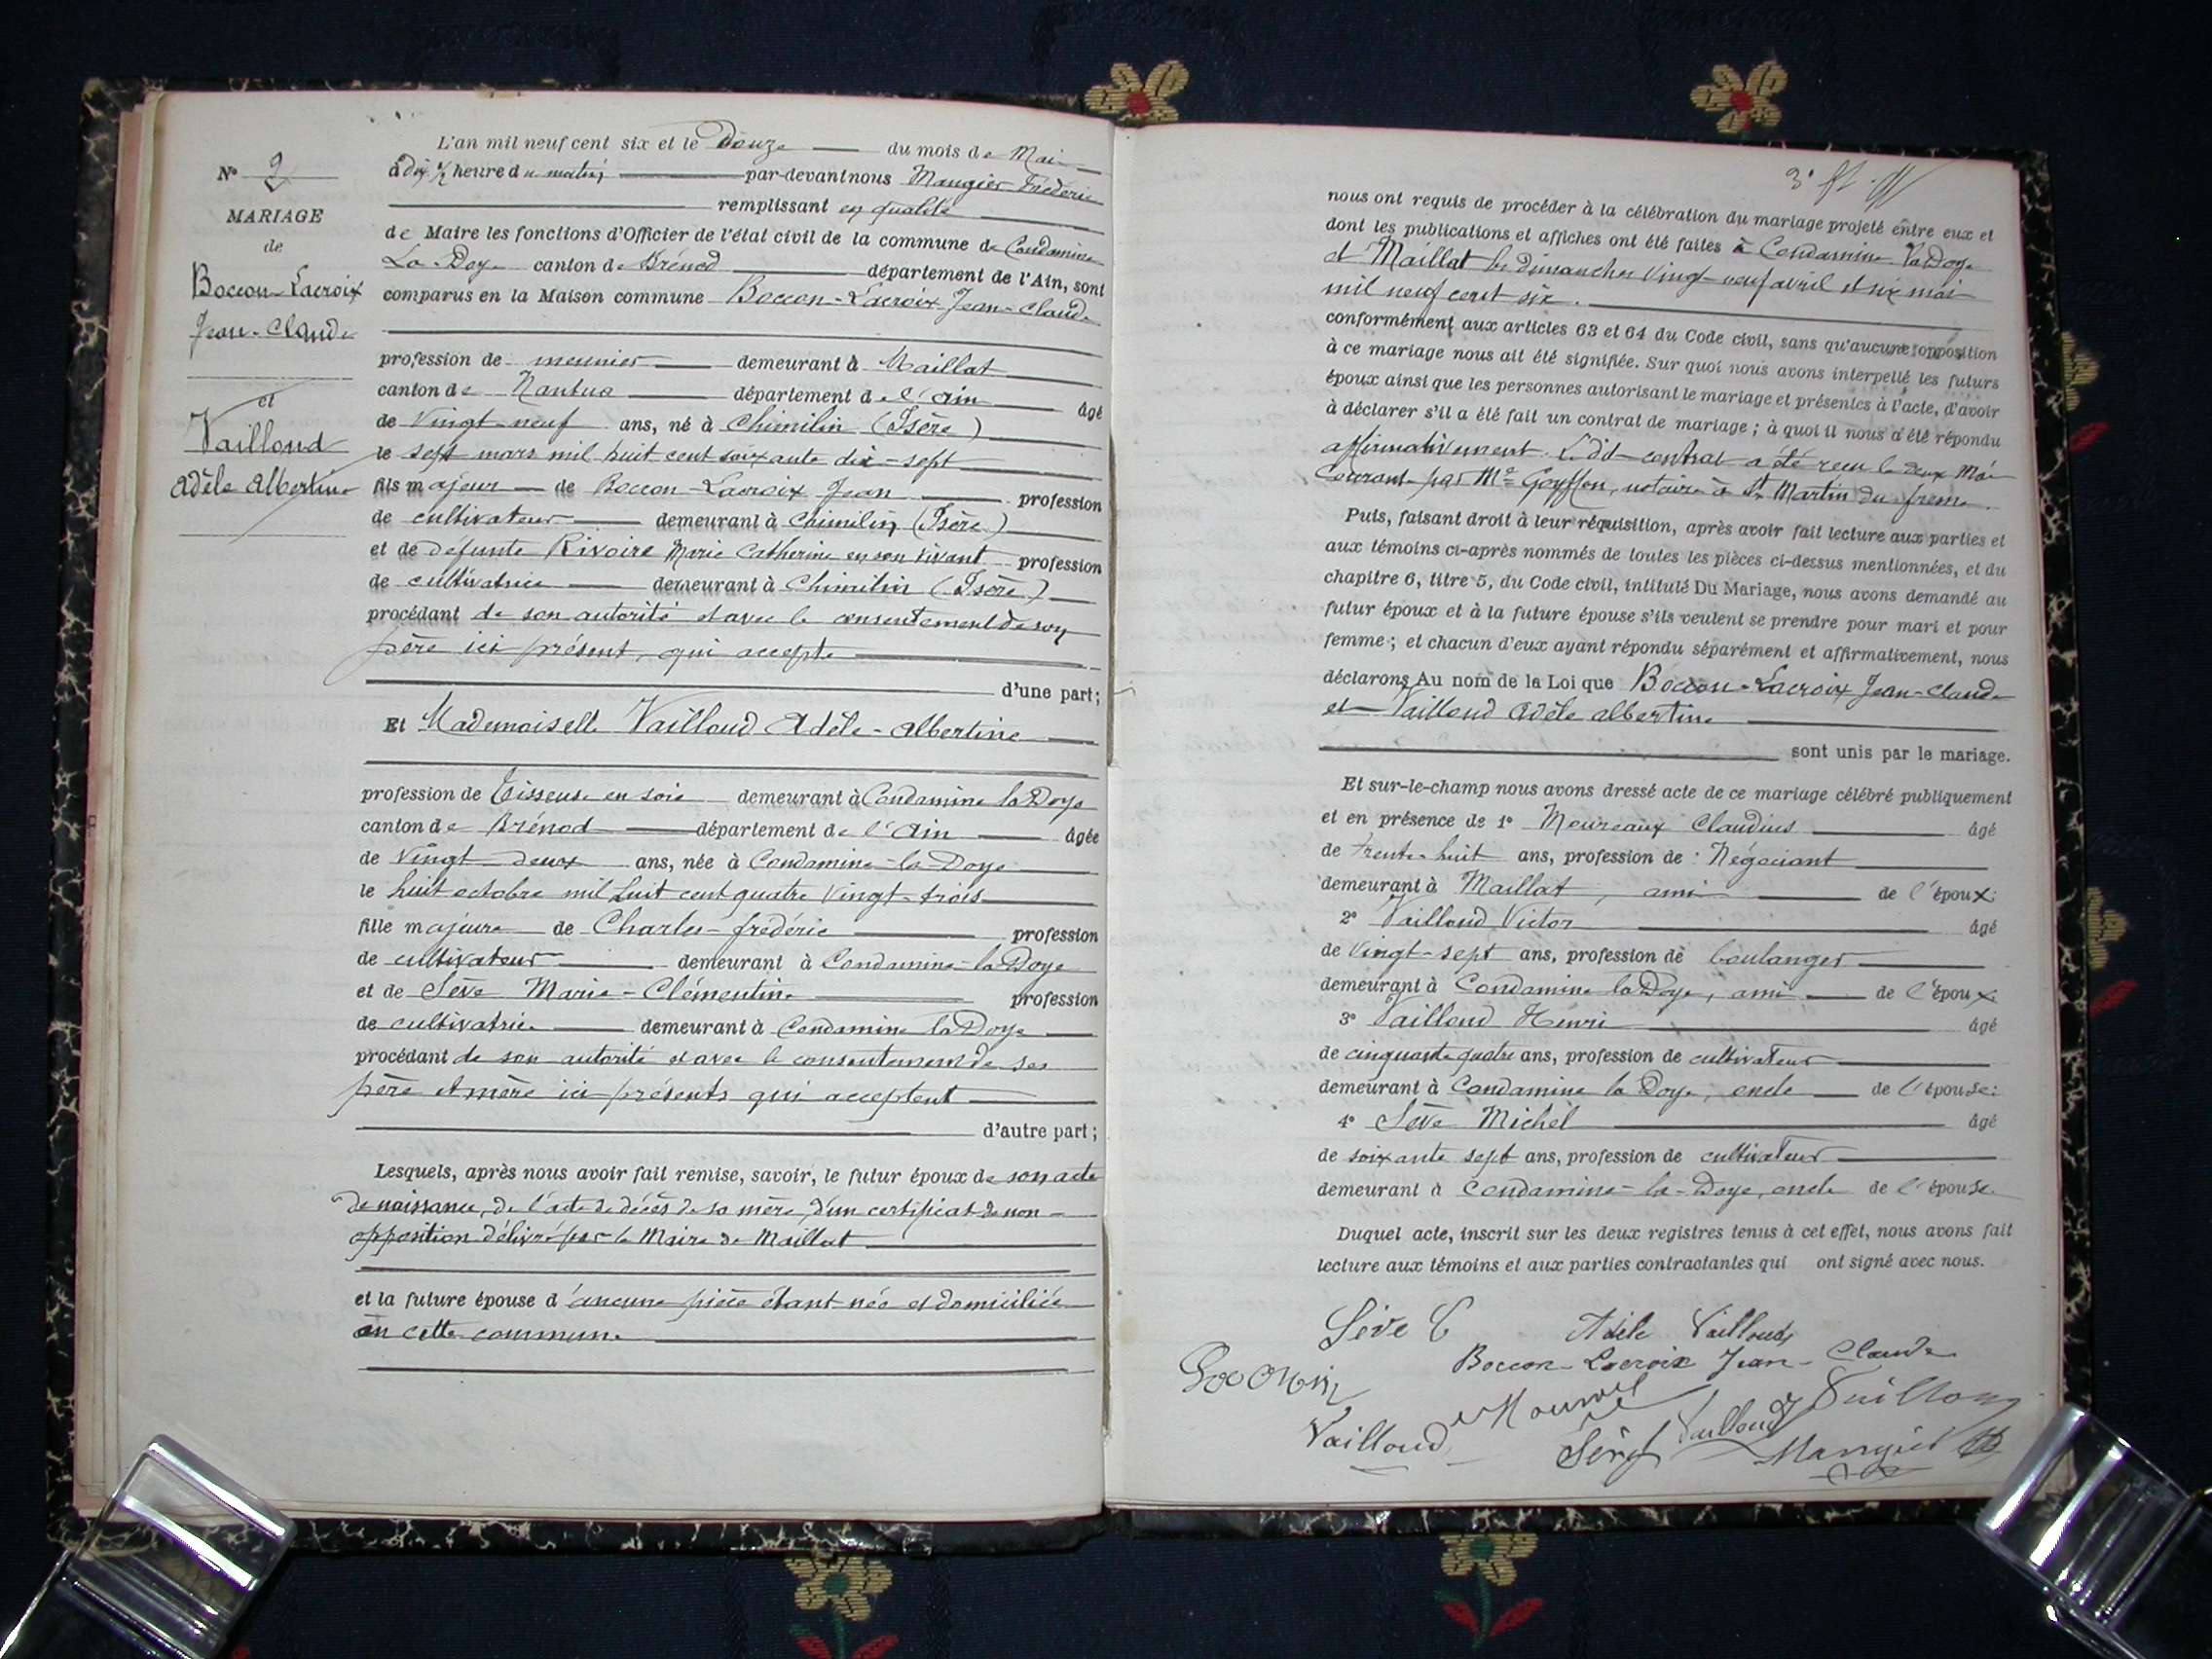 N° 2
MARIAGE
de
Boccon-Lacroix
Jean-Claude
et
Vailloud
Adèle Albertine
L'an mil neuf cent six et le Douze du mois de Mai
à dix ½ heure du matin, par-devant nous Mangier Frédéric
remplissant en qualité
de Maire les fonctions d'Officier de l'état civil de la commune de Condamine
La Doye canton de Brénod département de l'Ain, sont
comparus en la Maison commune Boccon-Lacroix Jean-Claude
profession de meunier demeurant à Maillat
canton de Nantua département de l'Ain âgé
de Vingt-neuf ans, né à Chimilin (Isère)
le sept mars mil huit cent soixante dix-sept
fils majeur de Boccon-Lacroix Jean profession
de cultivateur demeurant à Chimilin (Isère)
et de défunte Rivoire Marie Catherine en son vivant profession
de cultivatrice demeurant à Chimilin (Isère)
procédant de son autorité et avec le consentement de son
père ici présent, qui accepte
d'une part;
Et Mademoiselle Vailloud Adèle-Albertine
profession de Tisseuse en soie demeurant à Condamine la Doye
canton de Brénod département de l'Ain âgée
de Vingt deux ans, née à Condamine-la-Doye
le huit octobre mil huit cent quatre Vingt-trois
fille majeure de Charles-frédéric profession
de cultivateur demeurant à Condamine-la Doye
et de Sève Marie-Clémentine profession
de cultivatrice demeurant à Condamine la Doye
procédant de son autorité et avec le consentement de ses
père et mère ici présents qui acceptent
d'autre part;
Lesquels, après nous avoir fait remise, savoir, le futur époux de son acte
de naissance, de l'acte de décès de sa mère, d'un certificat de non-
opposition délivré par le Maire de Maillat
et la future épouse d'aucune pièce étant née et domiciliée
en cette commune
nous ont requis de procéder à la célébration du mariage projeté entre eux et
dont les publications et affiches ont été faites à Condamine la Doye
et Maillat les dimanches Vingt-neuf avril et six mai
mil neuf cent six.
conformément aux articles 63 et 64 du Code civil, sans qu'aucune opposition
à ce mariage nous ait été signifiée. Sur quoi nous avons interpellé les futurs
époux ainsi que les personnes autorisant le mariage et présentes à l'acte, d'avoir
à déclarer s'il a été fait un contrat de mariage; à quoi il nous a été répondu
affirmativement. Ledit contrat a été reçu le deux Mai
Courant par Me Goyffon, notaire à St Martin du frêne.
Puis, faisant droit à leur réquisition, après avoir fait lecture aux parties et
aux témoins ci-après nommés de toutes les pièces ci-dessus mentionnées, et du
chapitre 6, titre 5, du Code civil, intitulé Du Mariage, nous avons demandé au
futur époux et à la future épouse s'ils veulent se prendre pour mari et pour
femme; et chacun d'eux ayant répondu séparément et affirmativement, nous
déclarons Au nom de la Loi que Boccon-Lacroix Jean-Claude
et Vailloud Adèle albertine
sont unis par le mariage.
Et sur-le-champ nous avons dressé acte de ce mariage célébré publiquement
et en présence de 1° Moureaux Claudius âgé
de trente-huit ans, profession de Négociant
demeurant à Maillat, ami de l'époux:
2° Vailloud Victor âgé
de Vingt-sept ans, profession de boulanger
demeurant à Condamine la Doye, ami de l'époux
3° Vailloud Henri âgé
de cinquante quatre ans, profession de cultivateur
demeurant à Condamine la Doye, oncle de l'épouse:
4° Sève Michel âgé
de soixante sept ans, profession de cultivateur
demeurant à Condamine-la-Doye, oncle de l'épouse
Duquel acte, inscrit sur les deux registres tenus à cet effet, nous avons fait
lecture aux témoins et aux parties contractantes qui ont signé avec nous.
Sève C Adèle Vailloud
Boccon-Lacroix Jean-Claude
Vailloud Vailloud Mangier